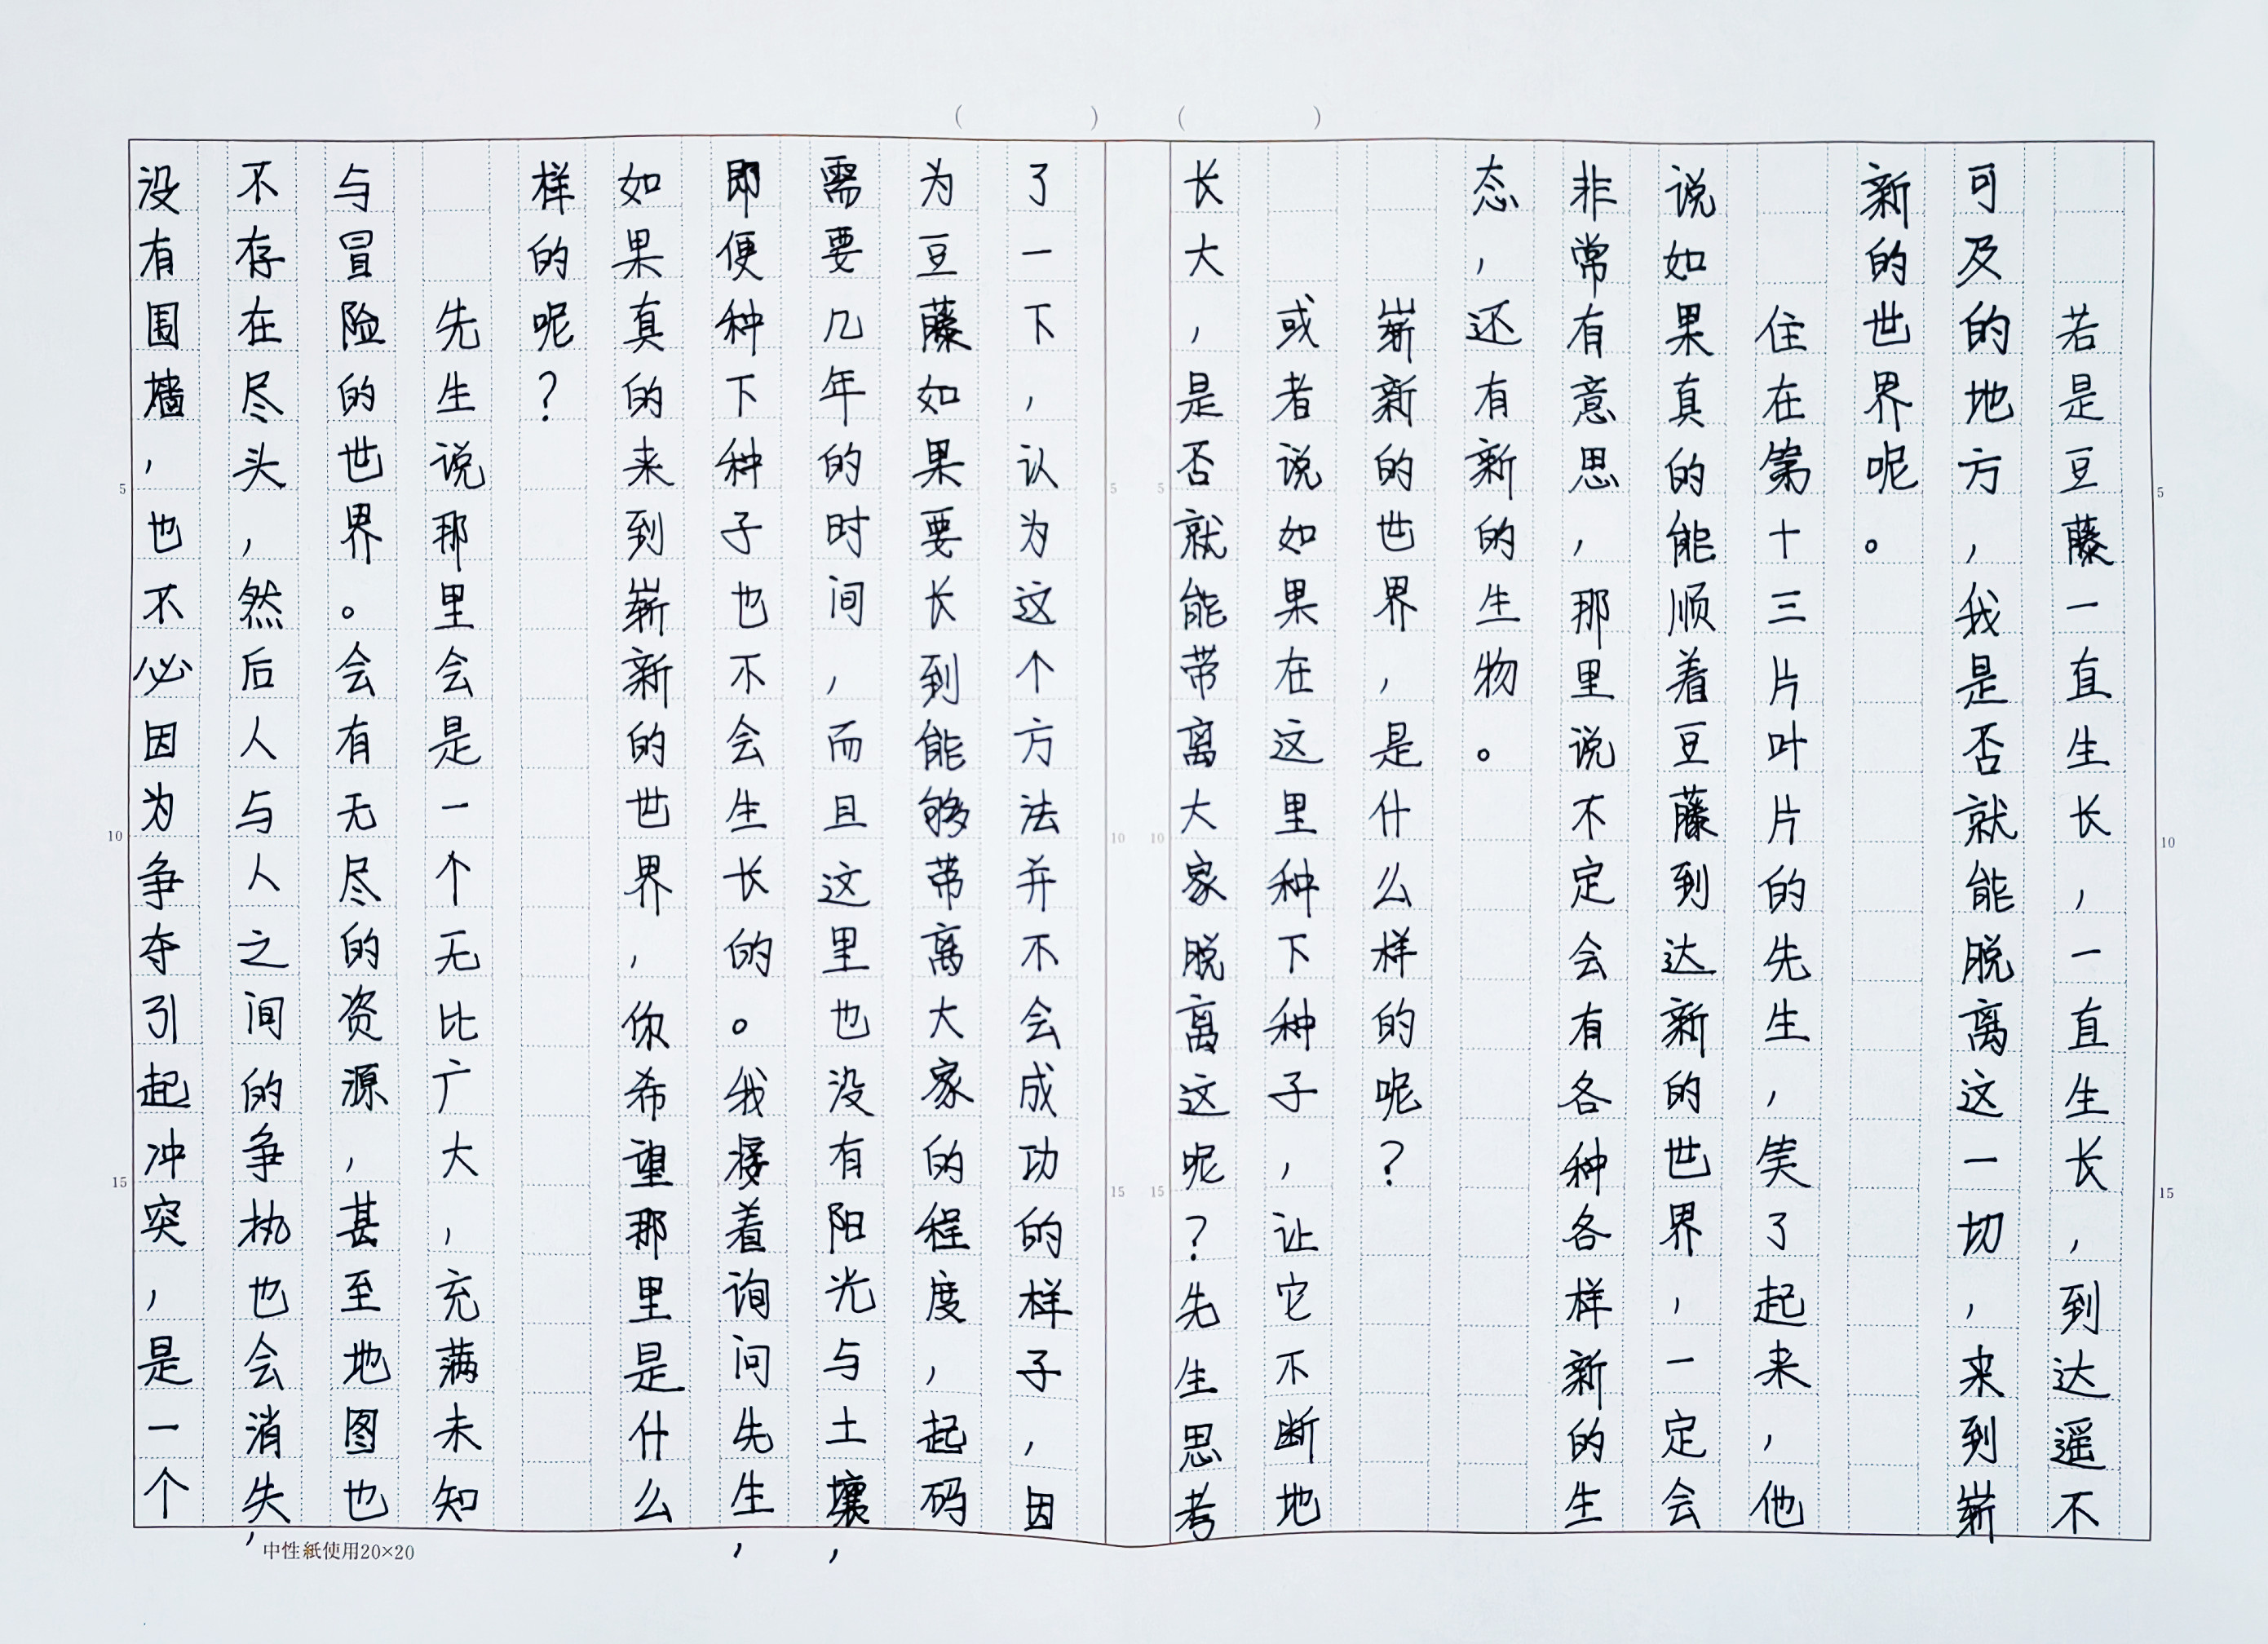 ( ) ( )
若是豆藤一直生长，一直生长，到达遥不
可及的地方，我是否就能脱离这一切，来到崭
新的世界呢。
住在第十三片叶片的先生，笑了起来，他
说如果真的能顺着豆藤到达新的世界，一定会
非常有意思，那里说不定会有各种各样新的生
态，还有新的生物。
崭新的世界，是什么样的呢？
或者说如果在这里种下种子，让它不断地
长大，是否就能带离大家脱离这呢？先生思考
了一下，认为这个方法并不会成功的样子，因
为豆藤如果要长到能够带离大家的程度，起码
需要几年的时间，而且这里也没有阳光与土壤，
即便种下种子也不会生长的。我接着询问先生，
如果真的来到崭新的世界，你希望那里是什么
样的呢？
先生说那里会是一个无比广大，充满未知
与冒险的世界。会有无尽的资源，甚至地图也
不存在尽头，然后人与人之间的争执也会消失，
没有围墙，也不必因为争夺引起冲突，是一个
5
10
15
5
10
15
5
10
15
5
10
15
中性紙使用20×20